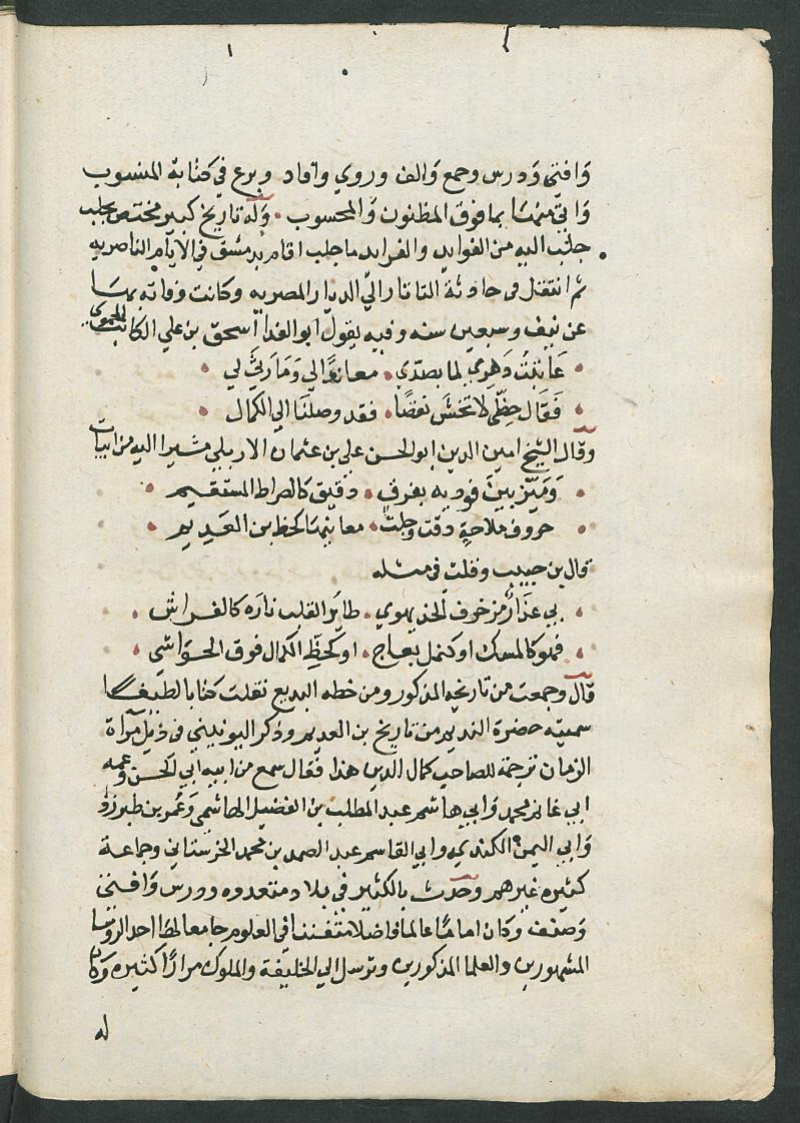 وافتى ودرس وجمع والف وروي وافاد وبرع في كتابة المنسوب
واتى منها بما فوق المظنون والمحسوب • وله تاريخ كبير مختص بحلب
جلب اليه من الفوايد والفرايد ما جلب اقام بدمشق في الايام الناصريه
ثم انتقل في حادثة التاتار الي الديار المصريه وكانت وفاته بها
عن نيف وسبعين سنه وفيه يقول ابو الفدا اسحق بن علي الكاتب الحموي
• عاتبت دهري لما تصدي • معاندا لي وما رثي لي •
• فقال حظي لا تخش نقصا • فقد وصلنا الي الكمال •
وقال الشيخ امين الدين ابو الحسن علي بن عثمان الاربلي مشيرا اليه من ابيات
• وميز بين فوديه بفرق • دقيق كالصراط المستقيم •
• حروف ملاحة دقت وجلت • معانيها كخط بن العديم •
قال بن حبيب وقلت في مثله
• بي عذار مزخرف الخد يهوي • طاير القلب ناره كالفراش •
• فهو كالمسك او كنمل بعاج • او كخط الكمال فوق الحواشي •
قال وجمعت من تاريخه المذكور ومن خطه البديع نقلت كتابا لطيفا
سميته حضرة النديم من تاريخ بن العديم وذكر اليونيني في ذيل مرآة
الزمان ترجمة للصاحب كمال الدين هذا فقال سمع من ابيه ابي الحسن وعمه
ابي غانم محمد وابي هاشم عبد المطلب بن الفضيل الهاشمي وعمر بن طبرزد
وابي اليمن الكندي وابي القاسم عبد الصمد بن محمد الخرستاني وجماعة
كثيره غيرهم وحدث بالكثير في بلاد متعدده ودرس وافتى
وصنف وكان اماما عالما فاضلا متفننا في العلوم جامعا لها احد الروسا
المشهورين والعلما المذكورين وترسل الي الخليفة والملوك مرارا كثيره وكان
له